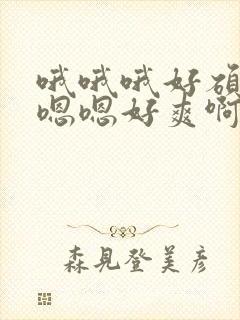 哦哦哦好硕
嗯嗯好爽啊
森見登美彦